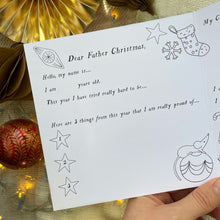 Dear Father Christmas,
Hello, my name is...
I am years old.
This year I have tried really hard to be...
Here are 3 things from this year that I am really proud of...
1
2
3
My C
I